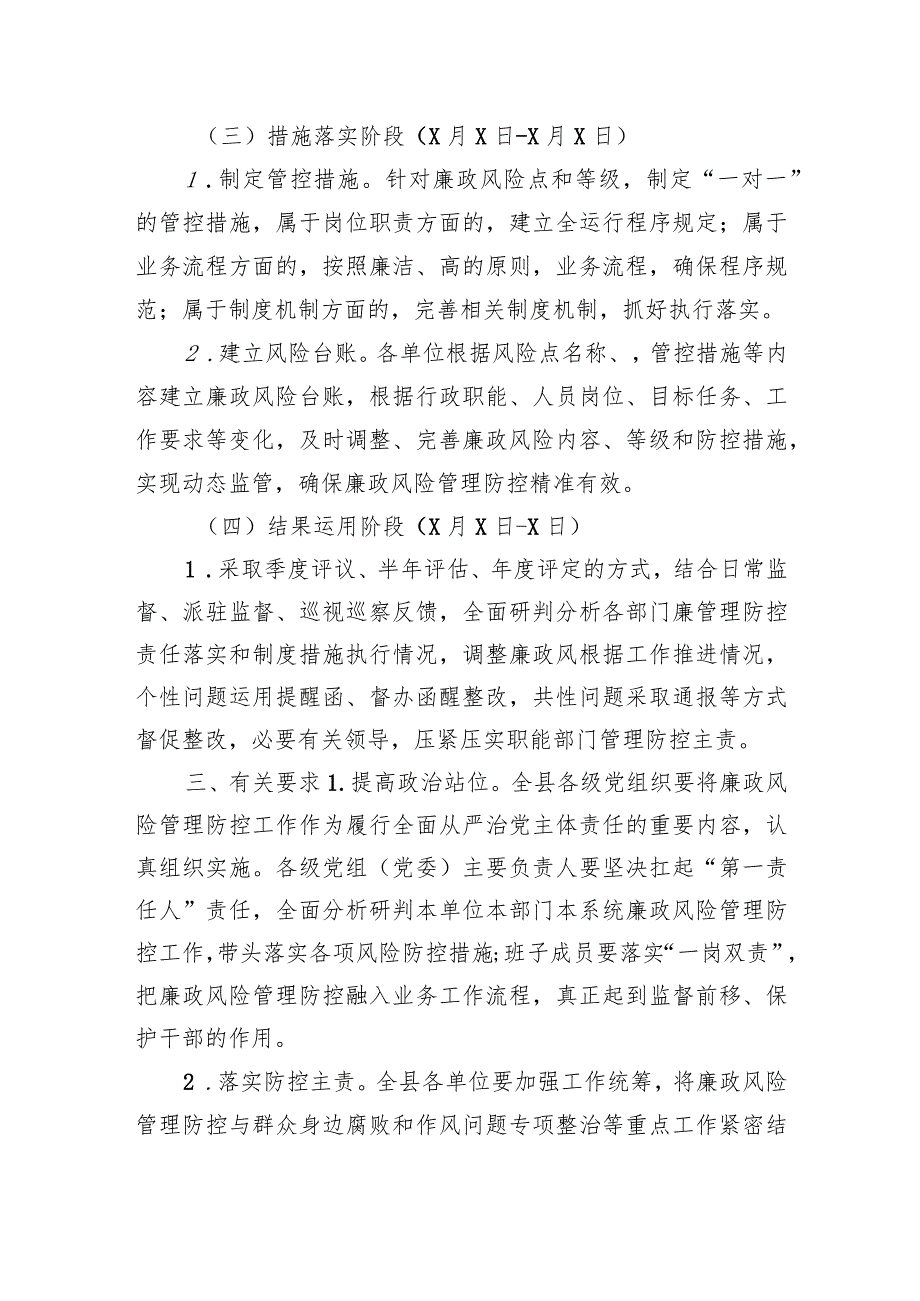 （三）措施落实阶段（X月X日-X月X日）
1.制定管控措施。针对廉政风险点和等级，制定“一对一”
的管控措施，属于岗位职责方面的，建立全运行程序规定；属于
业务流程方面的，按照廉洁、高的原则，业务流程，确保程序规
范；属于制度机制方面的，完善相关制度机制，抓好执行落实。
2.建立风险台账。各单位根据风险点名称、，管控措施等内
容建立廉政风险台账，根据行政职能、人员岗位、目标任务、工
作要求等变化，及时调整、完善廉政风险内容、等级和防控措施，
实现动态监管，确保廉政风险管理防控精准有效。
（四）结果运用阶段（X月X日-X日）
1.采取季度评议、半年评估、年度评定的方式，结合日常监
督、派驻监督、巡视巡察反馈，全面研判分析各部门廉管理防控
责任落实和制度措施执行情况，调整廉政风根据工作推进情况，
个性问题运用提醒函、督办函醒整改，共性问题采取通报等方式
督促整改，必要有关领导，压紧压实职能部门管理防控主责。
三、有关要求1.提高政治站位。全县各级党组织要将廉政风
险管理防控工作作为履行全面从严治党主体责任的重要内容，认
真组织实施。各级党组（党委）主要负责人要坚决扛起“第一责
任人”责任，全面分析研判本单位本部门本系统廉政风险管理防
控工作,带头落实各项风险防控措施;班子成员要落实“一岗双责”，
把廉政风险管理防控融入业务工作流程，真正起到监督前移、保
护干部的作用。
2.落实防控主责。全县各单位要加强工作统筹，将廉政风险
管理防控与群众身边腐败和作风问题专项整治等重点工作紧密结